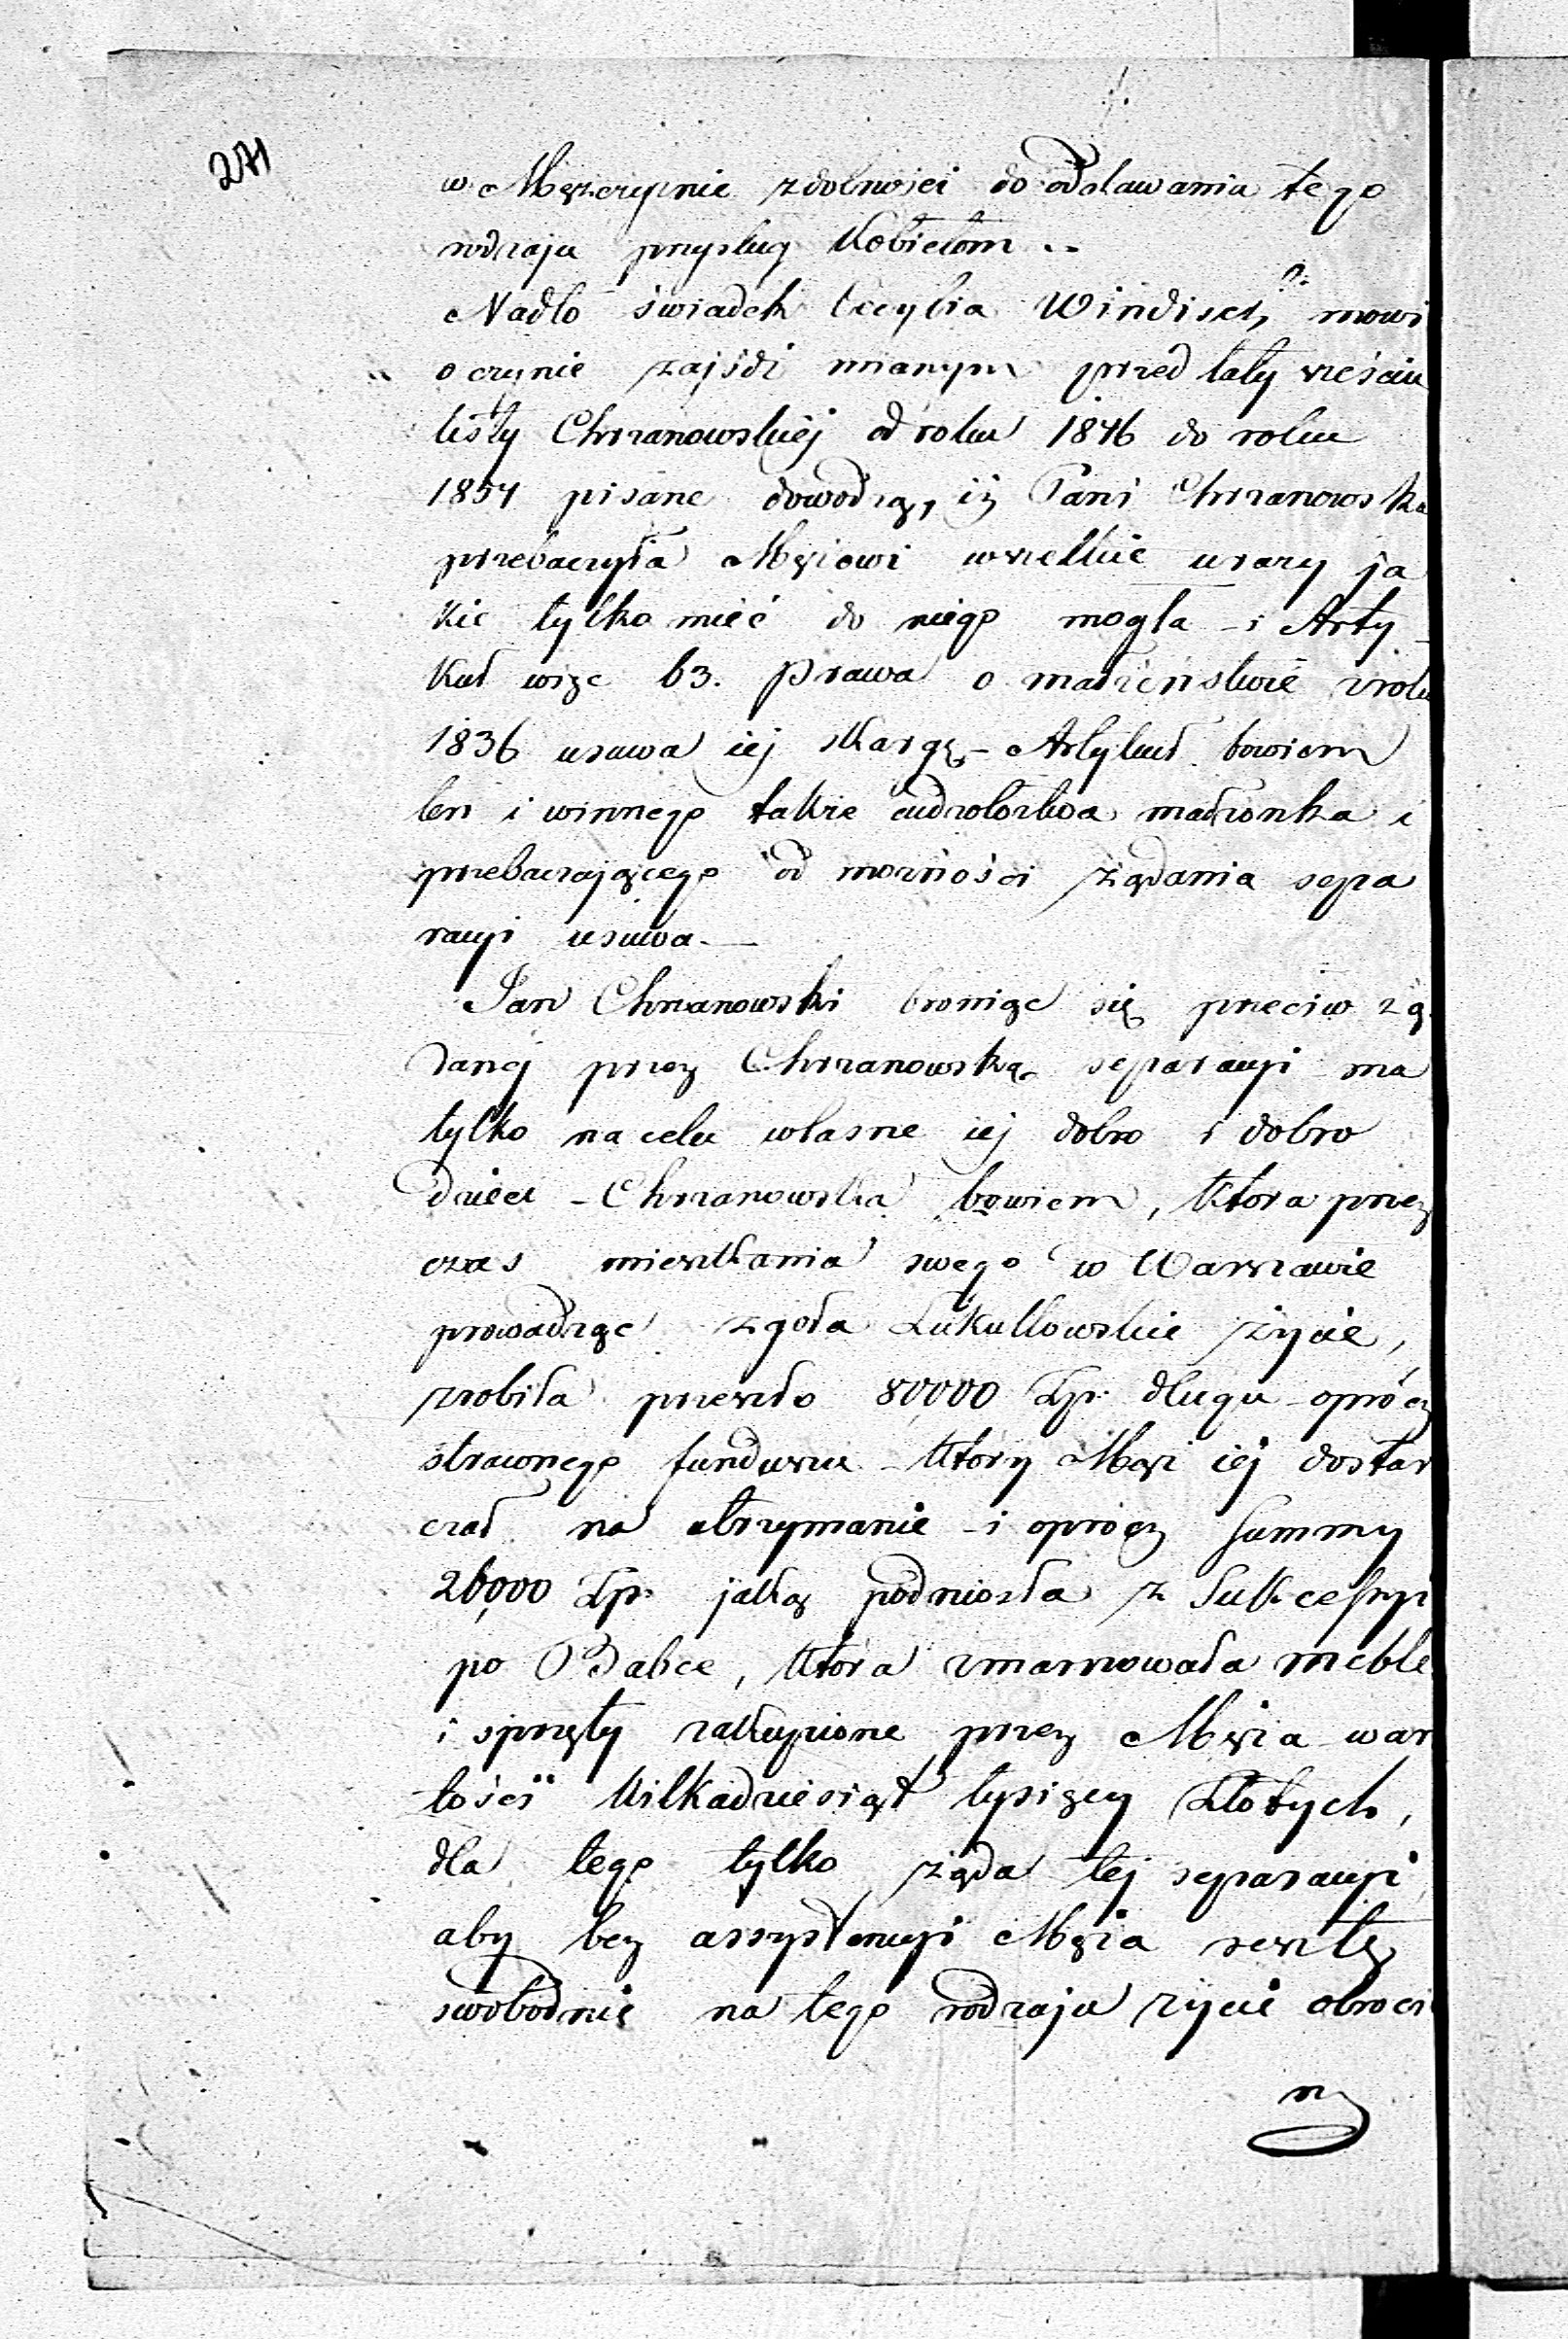 271
w Mężczyznie zdolności do oddawania tego
rodzaju przysług Kobietom ..
Nadto świadek Cecylia Windisch mowi
o czynie zajść mianym przed laty sześciu
listy Chrzanowskiéj od roku 1846 do roku
1854 pisane dowodzą, iż Pani Chrzanowska
przebaczyła Mężowi wszelkie urazy ja
kie tylko mieć do niego mogła – i Arty
kuł więc 63. Prawa o małżeństwie z roku
1836 usuwa iej skargę – Artykuł bowiem
ten i winnego także cudzołoztwa małżonka i
przebaczającego od możności żądania sepa
racyi usuwa. –
Jan Chrzanowski broniąc się przeciw żą
danej przez Chrzanowską separacyi ma
tylko na celu własne iej dobro i dobro
dzieci – Chrzanowska bowiem, która przez
czas mieszkania swego w Warszawie
prowadząc zgoła Lukullowskie życie,
zrobiła przeszło 80,000 Zp. długu oprócz
strawnego funduszu który Mąż iej dostar
czał na utrzymanie – i oprócz Summy
26,000 Zp. jaką podniosła z Sukcessyi
po Babce, która zmarnowała meble
i sprzęty zakupione przez Męża war
tości kilkadziesiąt tysięcy Złotych,
dla tego tylko żąda tej separacyi
aby bez assystencyi Męża resztę
swobodnie na tego rodzaju życie obroci